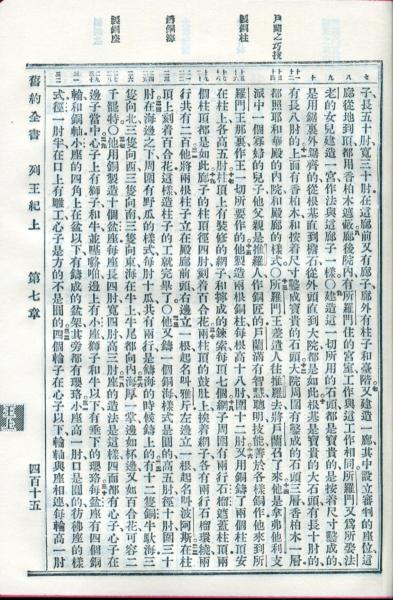 戶蘭之巧技
製銅柱
鑄銅海
製銅座
子、長五十肘寬三十肘在這廊前又有廊子、廊外有柱子和臺階又建造一廊其中設立審判的座位這
廊從地到頂都用香柏木遮蔽廊後院內有所羅門住的宮室工作與這工作相同所羅門又爲所娶法
老的女兒建造一宮作法與這廊子一樣〇建造這一切所用的石頭都是寶貴的是按着尺寸鑿成的
是用鋸裏外鋸齊的從根基直到檐石從外頭直到大院都是如此根基是寶貴的大石頭有長十肘的
有長八肘的上面有香柏木和按着尺寸鑿成寶貴的石頭大院周圍有鑿成的石頭三層香柏木一層
都照耶和華殿的內院和殿廊的樣式〇所羅門王差遣人往推羅去將戶蘭召了來他是拿弗他利支
派中一個寡婦的兒子他父親是推羅人作銅匠的戶蘭滿有智慧聰明技能善於各樣銅作他來到所
羅門王那裏王一切所要作的他製造兩根銅柱每根高十八肘圍十二肘又用銅鑄了兩個柱頂安
在柱上各高五肘柱頂上有裝修的網子和擰成的鍊索每頂七個網子周圍有兩行石榴遮蓋柱頂兩
個柱頂都是如此廊子的柱頂徑四肘刻着百合花兩柱頂的鼓肚上挨着網子各有兩行石榴環繞兩
行共有二百他將兩根柱子立在殿廊前頭右邊立一根起名叫雅斤左邊立一根起名叫波阿斯在柱
頂上刻着百合花這樣造柱子的工就完畢了〇他又鑄一個銅海樣式是圓的高五肘徑十肘圍三十
肘在海邊之下周圍有野瓜的樣式每肘十瓜共有兩行是鑄海的時候鑄上的有十二隻銅牛馱海三
隻向北三隻向西三隻向南三隻向東海在牛上牛尾都向內海厚一掌邊如杯邊又如百合花可容二
千罷特〇他用銅製造十個盆座每座長四肘寬四肘高三肘座的造法是這樣四面都有心子心子在
邊子當中心子上有獅子和牛並嘰嚕啪邊上有小座獅子和牛以下有垂下的瓔珞每盆座有四個銅
輪和銅軸小座的四角上在盆以下有鑄成的盆架其旁都有瓔珞小座高一肘口是圓的彷彿座的樣
式徑一肘半在口上有雕工心子是方的不是圓的四個輪子在心子以下輪軸與座相連每輪高一肘
舊約全書 列王紀上 第七章 四百十五
王上